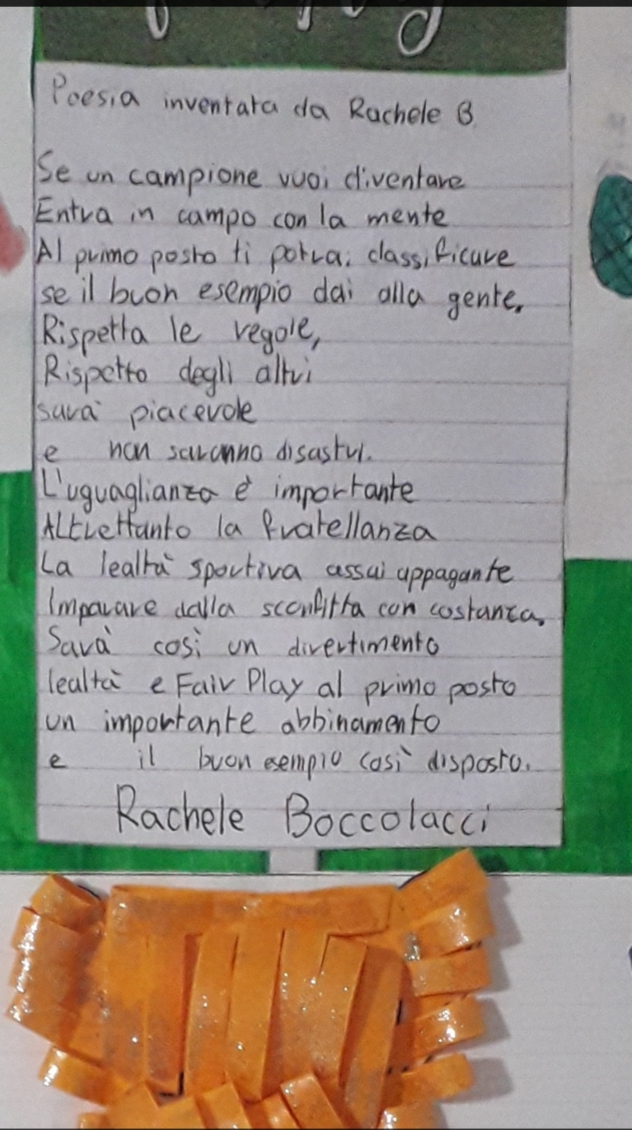 Poesia inventata da Rachele B.
Se un campione vuoi diventare
Entra in campo con la mente
Al primo posto ti potrai classificare
se il buon esempio dai alla gente.
Rispetta le regole,
Rispetto degli altri
sarà piacevole
e non saranno disastri.
L'uguaglianza è important
Altrettanto la fratellanza
La lealtà sportiva assai appagante
Imparare dalla sconfitta con costanza.
Sarà così un divertimento
lealtà e Fair Play al primo posto
un importante abbinamento
e il buon esempio così disposto.
Rachele Boccolacci